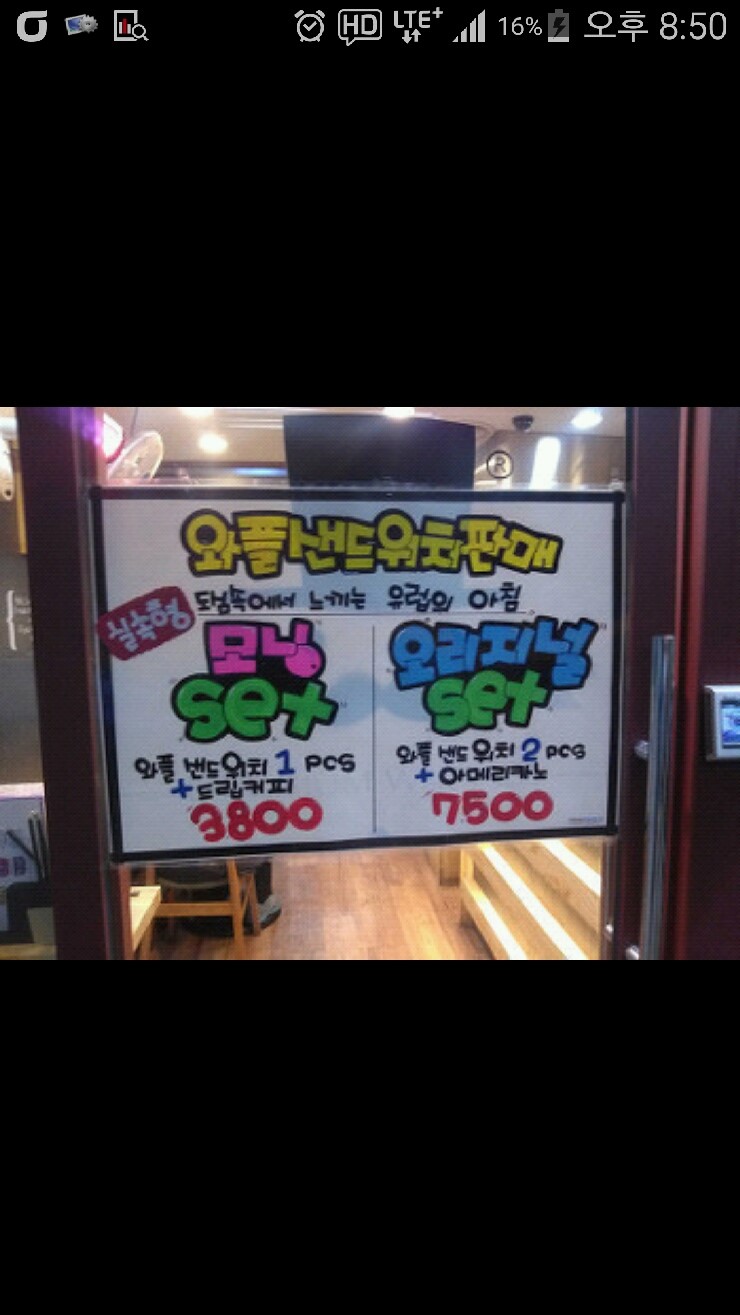 HD LTE+ 16% 오후 8:50
R
와플샌드위치판매
도심속에서 느끼는 유럽의 아침
실속형
모닝
set
와플 샌드위치 1 pcs
+ 드립커피
3800
오리지널
set
와플 샌드위치 2 pcs
+ 아메리카노
7500